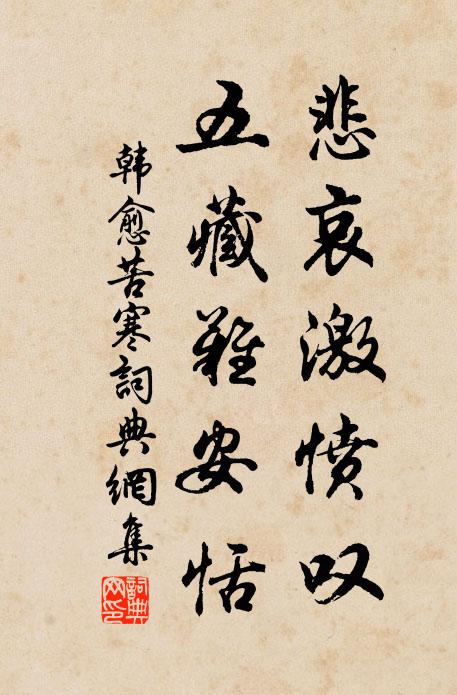 悲哀激愤叹
五藏難安恬
韩愈苦寒詞典網集
詞典
网印